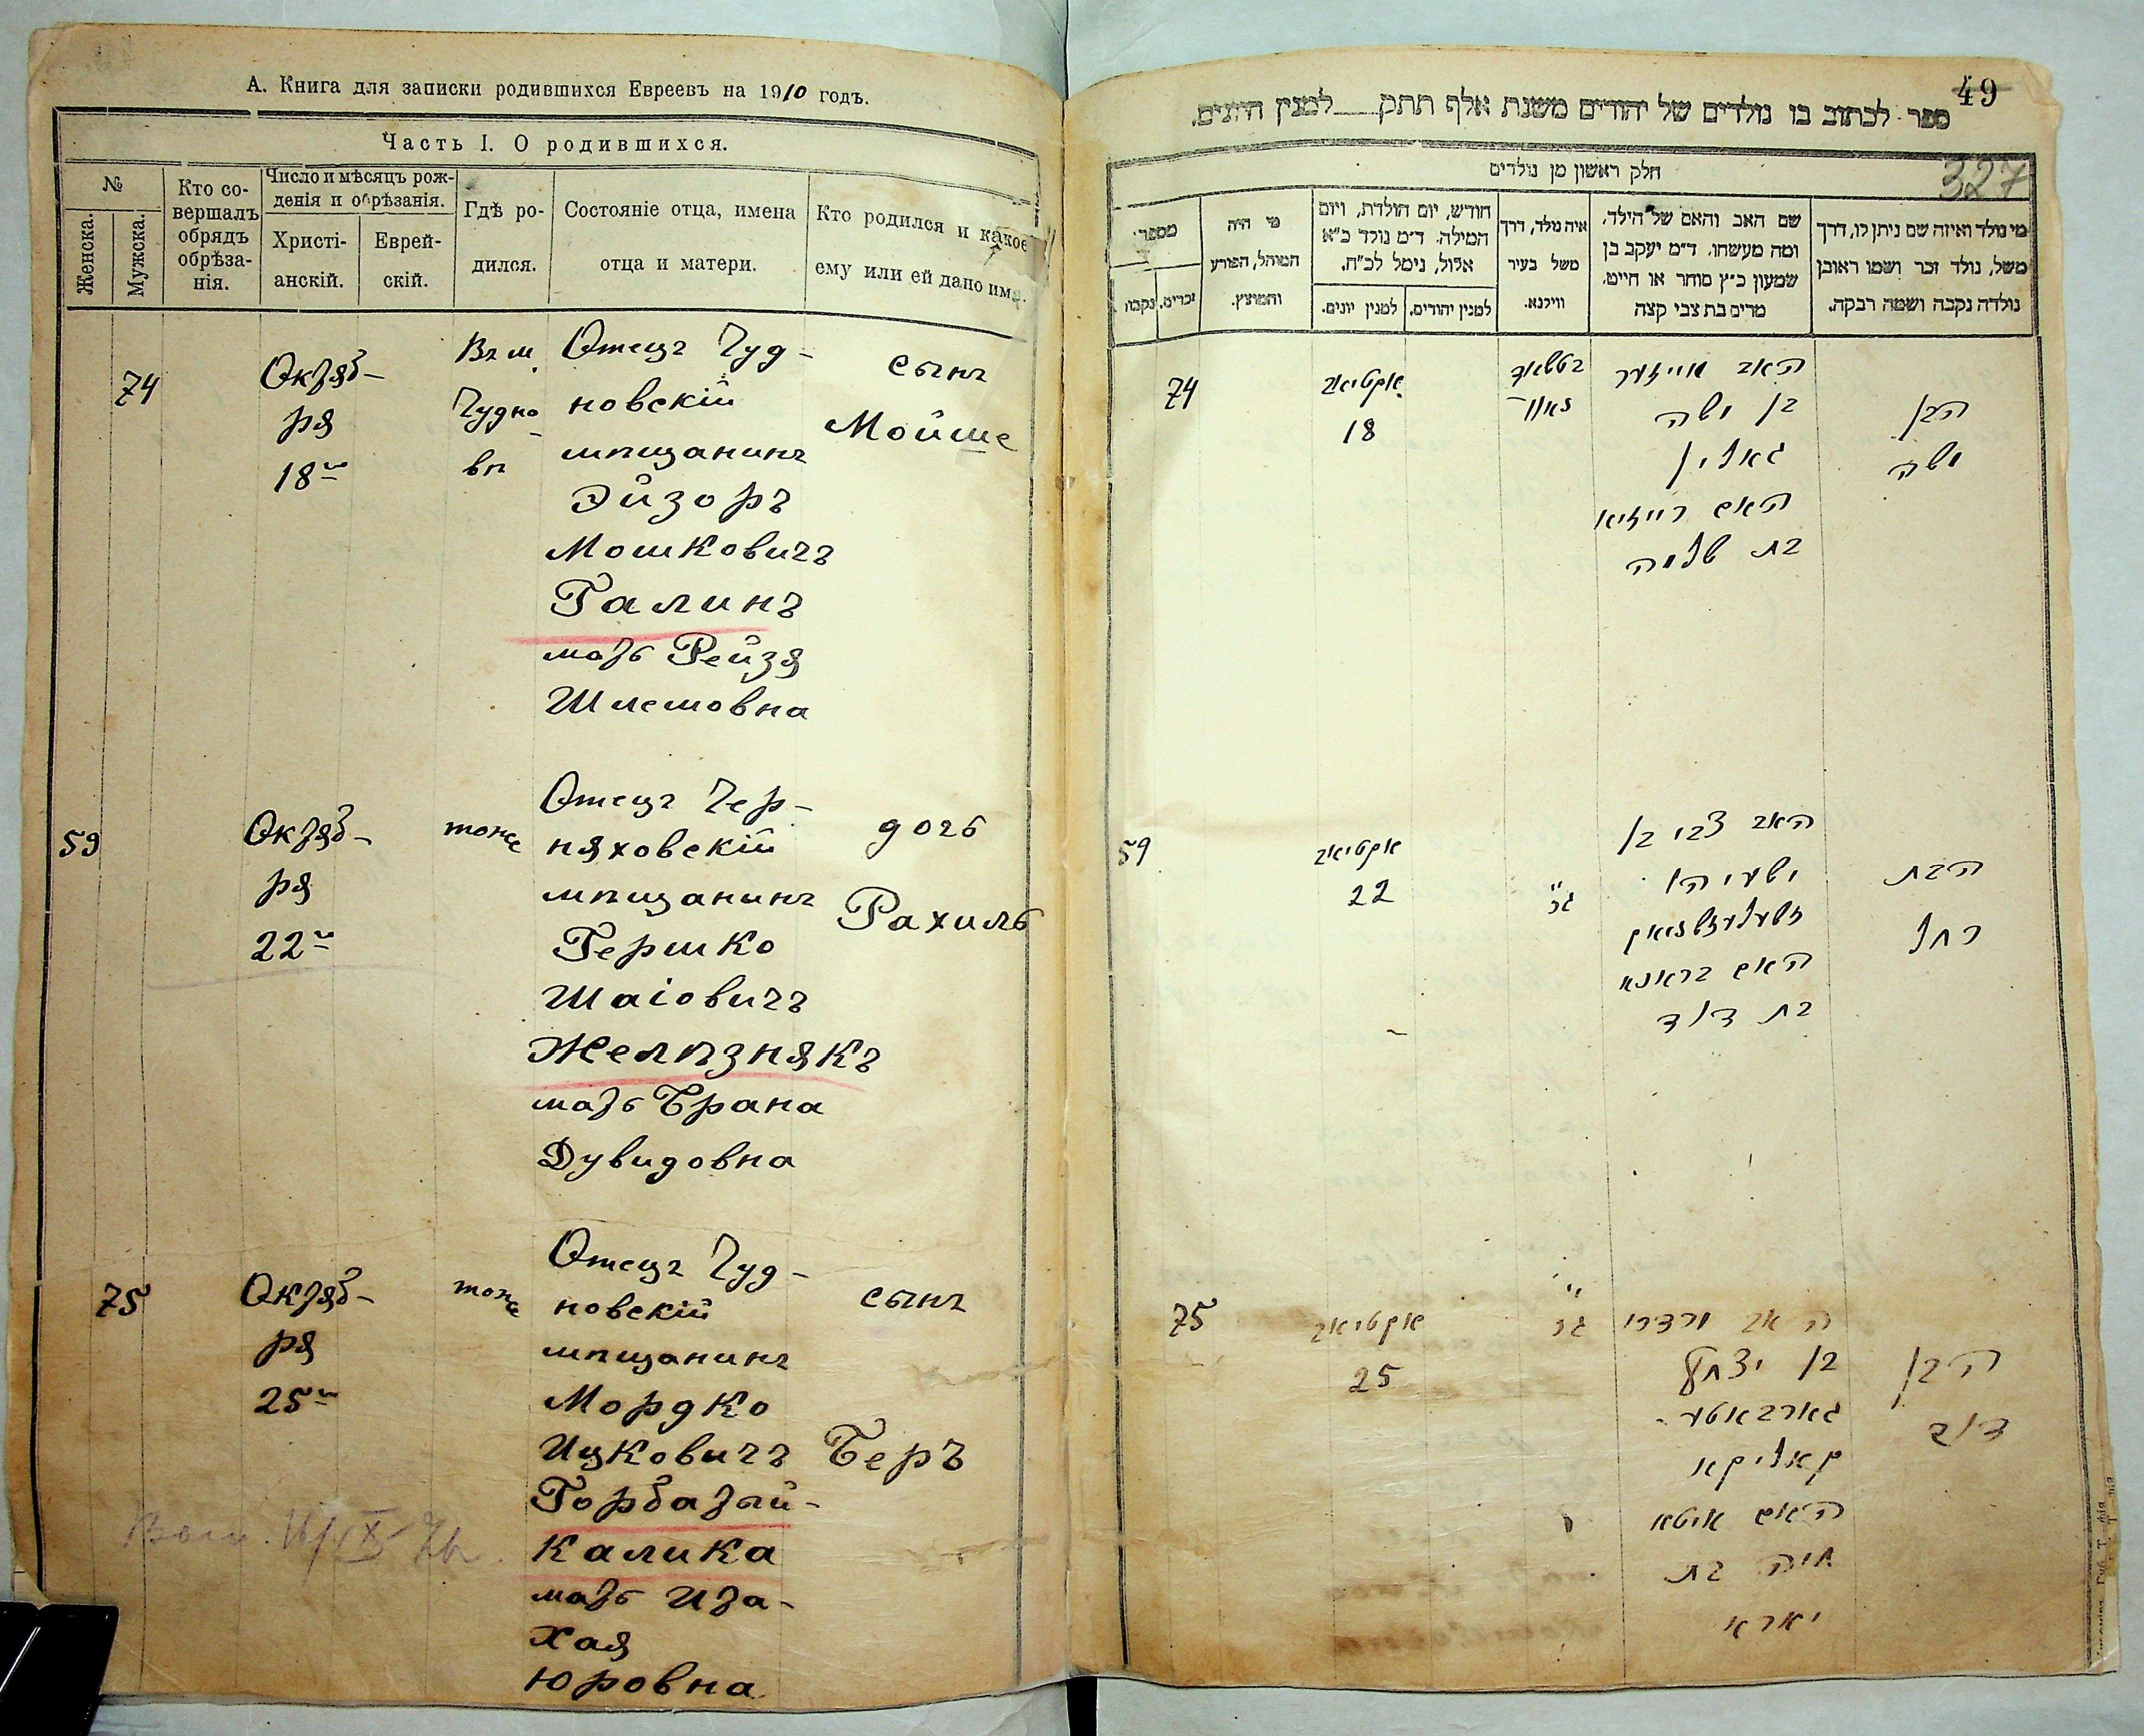 А. Книга для записки родившихся Евреевъ на 1910 годъ.
Часть I. О родившихся.
№
Женска.
Мужска.
Кто со-
вершалъ
обрядъ
обрѣза-
нія.
Число и мѣсяцъ рож-
денія и обрѣзанія.
Христі-
анскій.
Еврей-
скій.
Гдѣ ро-
дился.
Состояніе отца, имена
отца и матери.
Кто родился и какое
ему или ей дано имя.
74
Октяб-
ря
18го
Въ м.
Чудно
вѣ
Отецъ Чуд-
новскій
мѣщанинъ
Эйзоръ
Мошковичъ
Галинъ
мать Рейзя
Шлемовна
сынъ
Мойше
59
Октяб-
ря
22го
тоже
Отецъ Чер-
няховскій
мѣщанинъ
Гершко
Шаіовичъ
Желѣзнякъ
мать Брана
Дувидовна
дочь
Рахиль
75
Октяб-
ря
25го
тоже
Отецъ Чуд-
новскій
мѣщанинъ
Мордко
Ицковичъ
Горбатый-
Калика
мать Ита-
Хая
Юровна
сынъ
Беръ
49
327
ספר לכתוב בו נולדים של יהודים משנת אלף תתק למנין היונים.
חלק ראשון מן נולדים
מספר
נקבות
זכרים.
מי היה
המוהל, הפורע
והמוצץ.
חודש, יום הולדת, ויום
המילה. ד״מ נולד כ״א
אלול, נימל לכ״ח.
למנין יונים.
למנין יהודים.
איה נולד, דרך
משל בעיר
ווילנא.
שם האב והאם של הילד,
ומה מעשהו. ד״מ יעקב בן
שמעון כ״ץ סוחר או חייט,
מרים בת צבי קצה
מי נולד ואיזה שם ניתן לו, דרך
משל, נולד זכר ושמו ראובן
נולדה נקבה ושמה רבקה.
74
אקטיאב
18
האב אייזער
בן משה
גאלין
האם רייזיא
בת שלמה
הבן
משה
59
אקטיאב
22
האב צבי בן
ישעיהו
זשעלעזניאק
האם בראנא
בת דוד
הבת
רחל
75
אקטיאב
25
האב מרדכי
בן יצחק
גארבאטע-
קאליקא
האם איטא
חיה בת
יארא
הבן
דוב